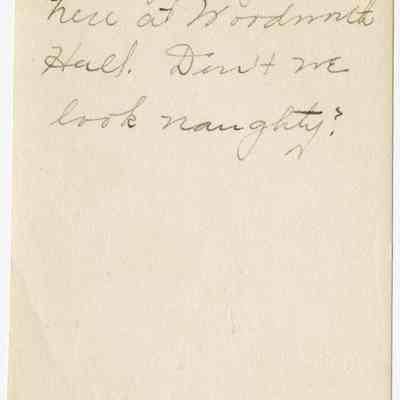 here at Woodworth
Hall. Don't we
look naughty?